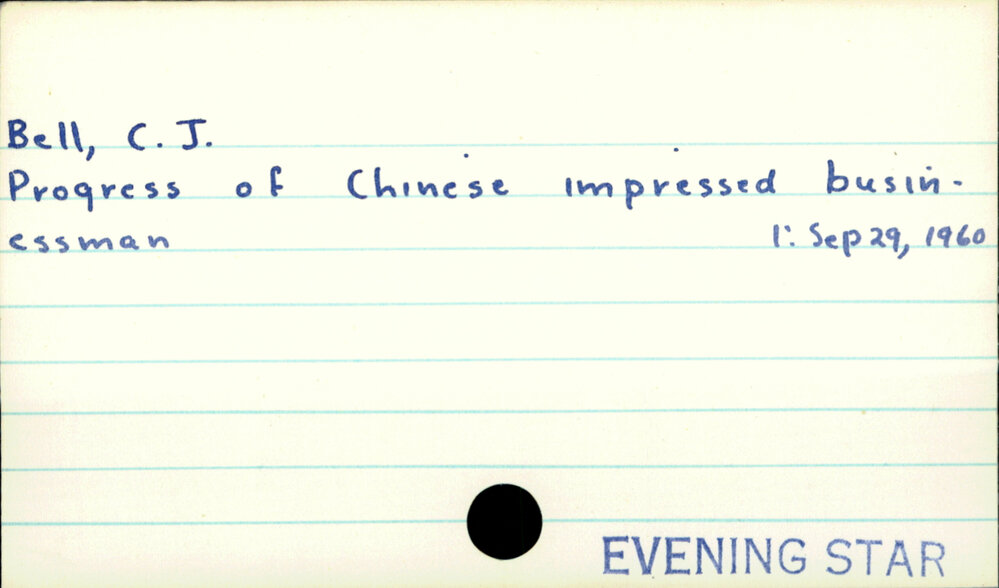 Bell, C. J.
Progress of Chinese impressed busin-
essman 1: Sep 29, 1960
EVENING STAR